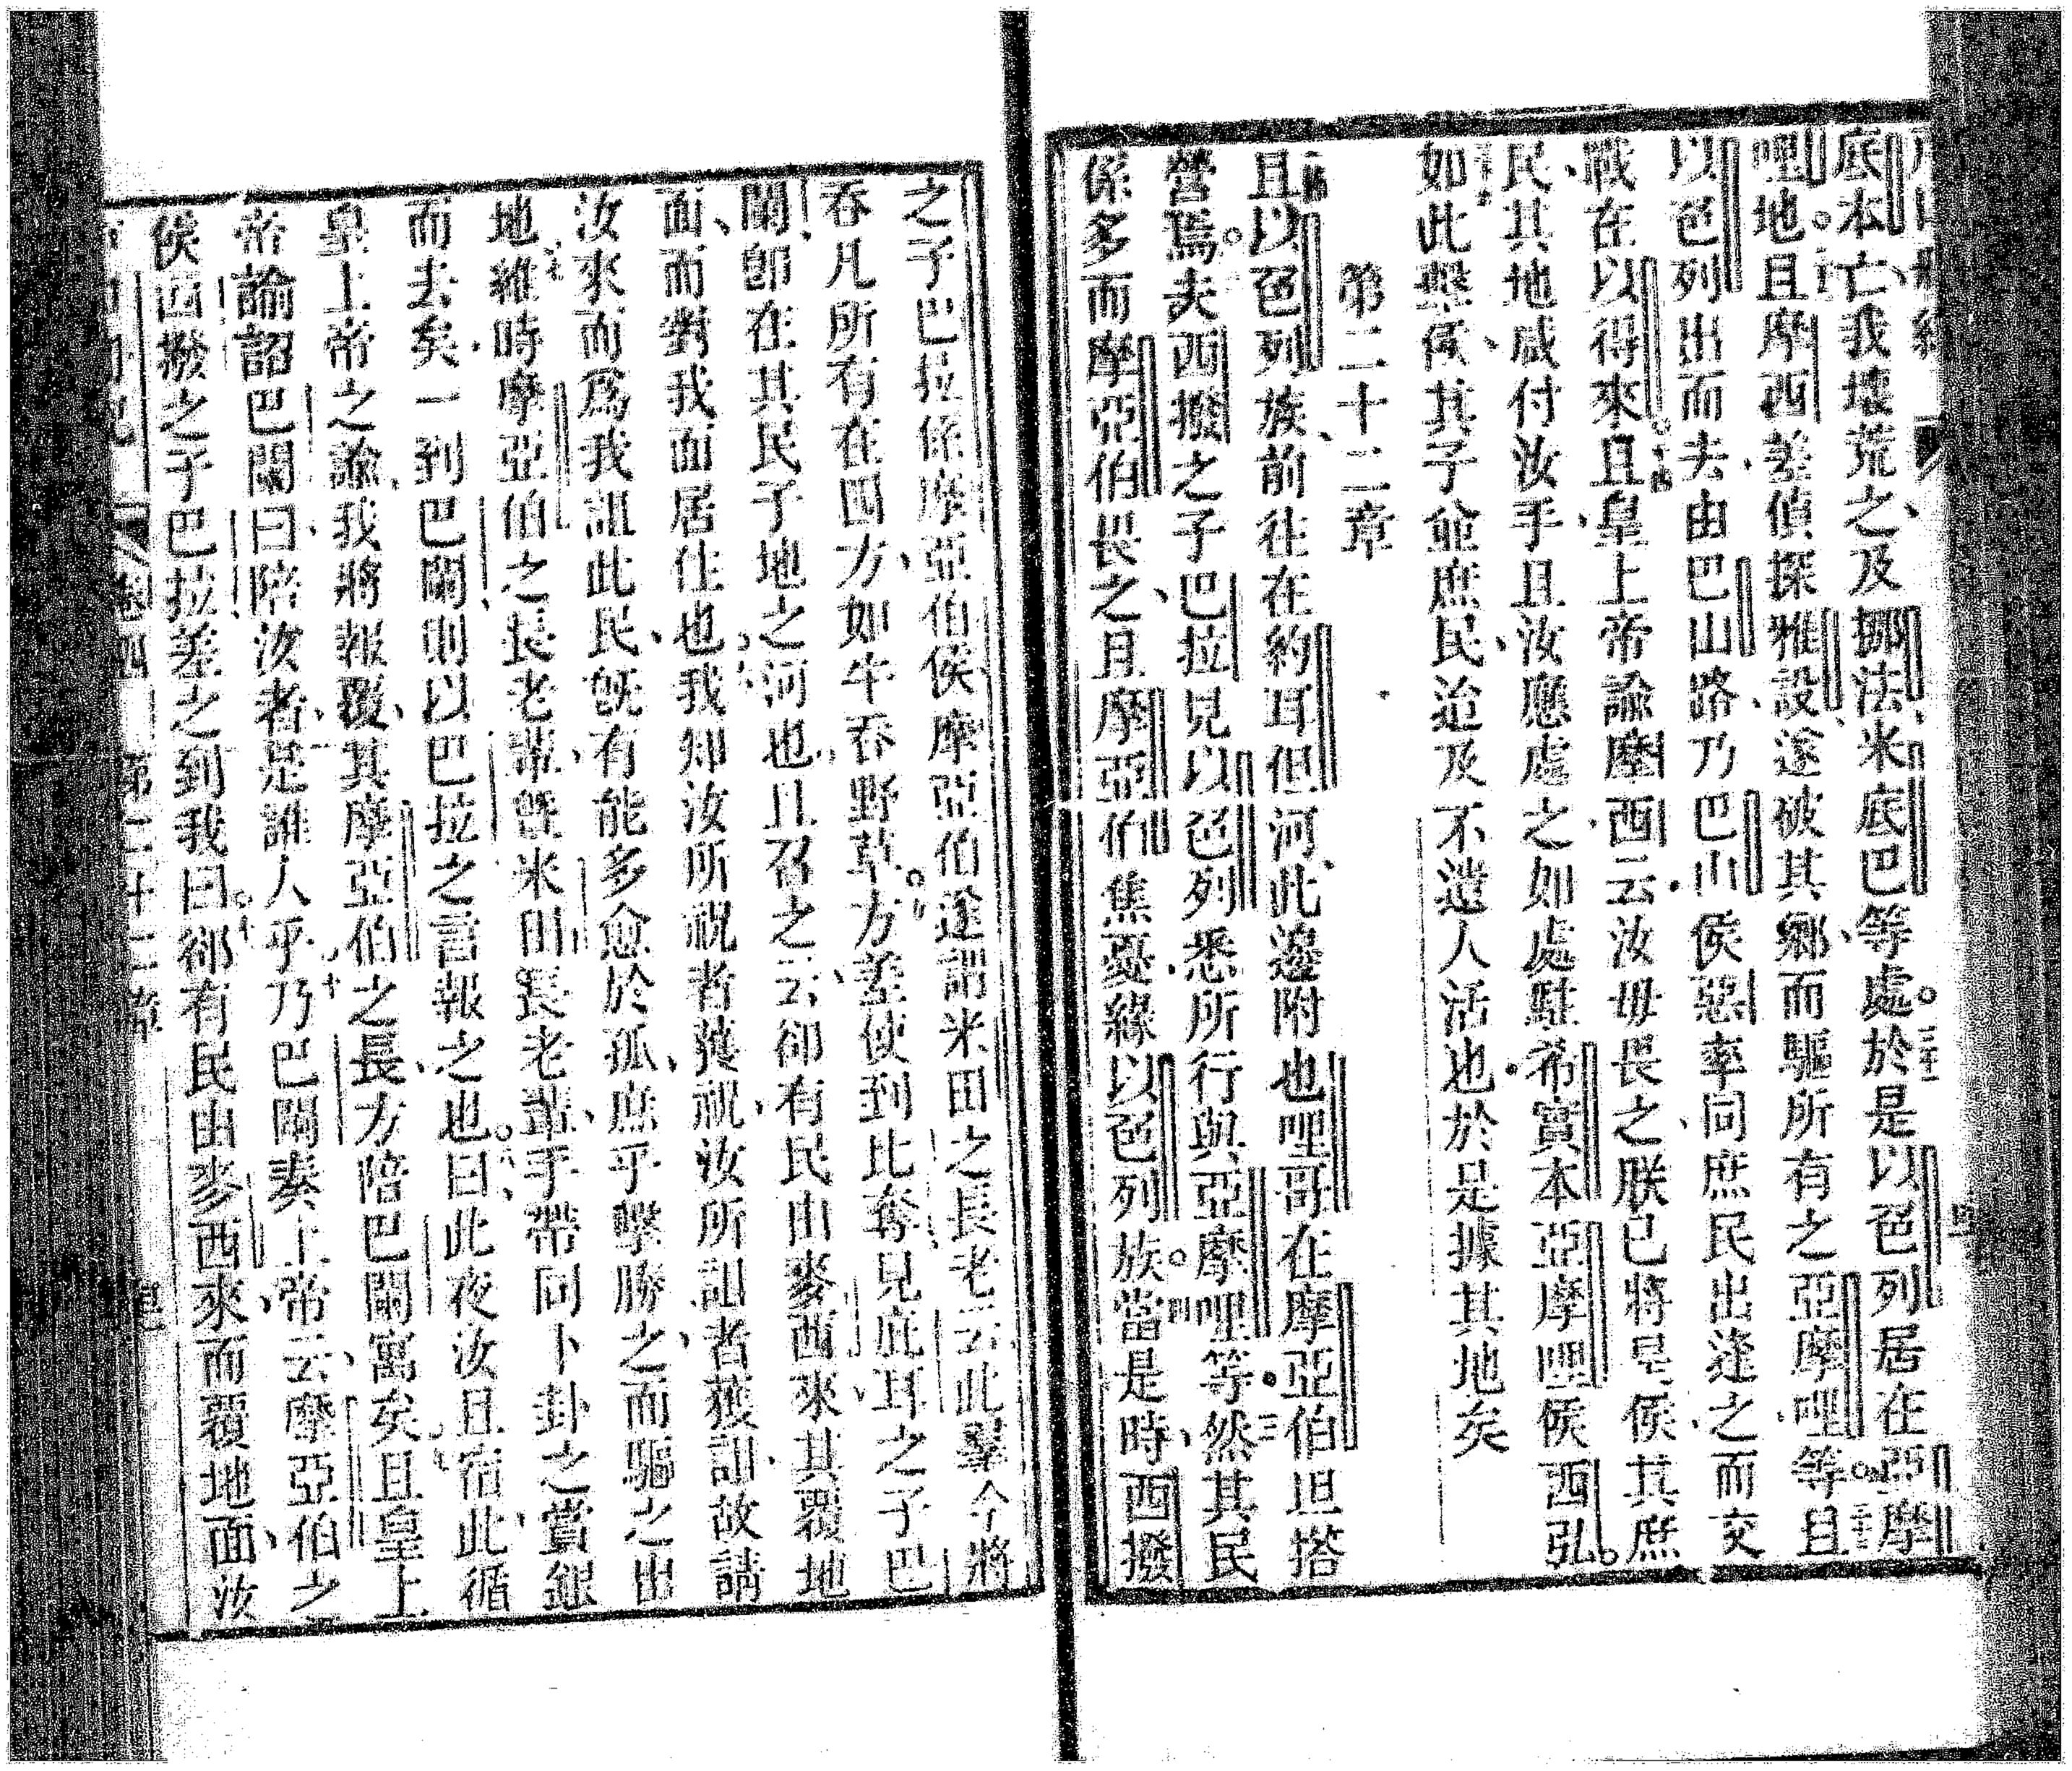 底本亡我壞荒之及挪法米底巴等處於是以色列居在亞摩
哩地且摩西差偵探雅設遂破其鄉而驅所有之亞摩哩等且
以色列出而去由巴山路乃巴山侯惡率同庶民出逢之而交
戰在以得來且皇上帝諭摩西云汝毋畏之朕已將是侯其庶
民其地咸付汝手且汝應處之如處駐希實本亞摩哩侯西弘
如此擊侯其子並庶民迨及不遺人活也於是據其地矣
第二十二章
且以色列族前往在約耳但河此邊附也哩哥在摩亞伯坦搭
營焉夫西撥之子巴拉見以色列悉所行與亞摩哩等然其民
係多而摩亞伯畏之且摩亞伯焦憂緣以色列族當是時西撥
之子巴拉係摩亞伯侯摩亞伯遂謂米田之長老云此羣今將
吞凡所有在四方如牛吞野草方差使到比奪見庇耳之子巴
闌卽在其民子地之河也且召之云卻有民由麥西來其覆地
面而對我面居住也我知汝所祝者獲祝汝所詛者獲詛故請
汝來而爲我詛此民旣有能多愈於孤庶乎擊勝之而驅之出
地維時摩亞伯之長老輩曁米田長老輩手帶同卜卦之賞銀
而去矣一到巴闌則以巴拉之言報之也曰此夜汝且宿此循
皇上帝之諭我將報覆其摩亞伯之長方陪巴闌寓矣且皇上
帝諭詔巴闌曰陪汝者是誰人乎乃巴闌奏上帝云摩亞伯之
侯西撥之子巴拉差之到我曰卻有民由麥西來而覆地面汝
第二十二章